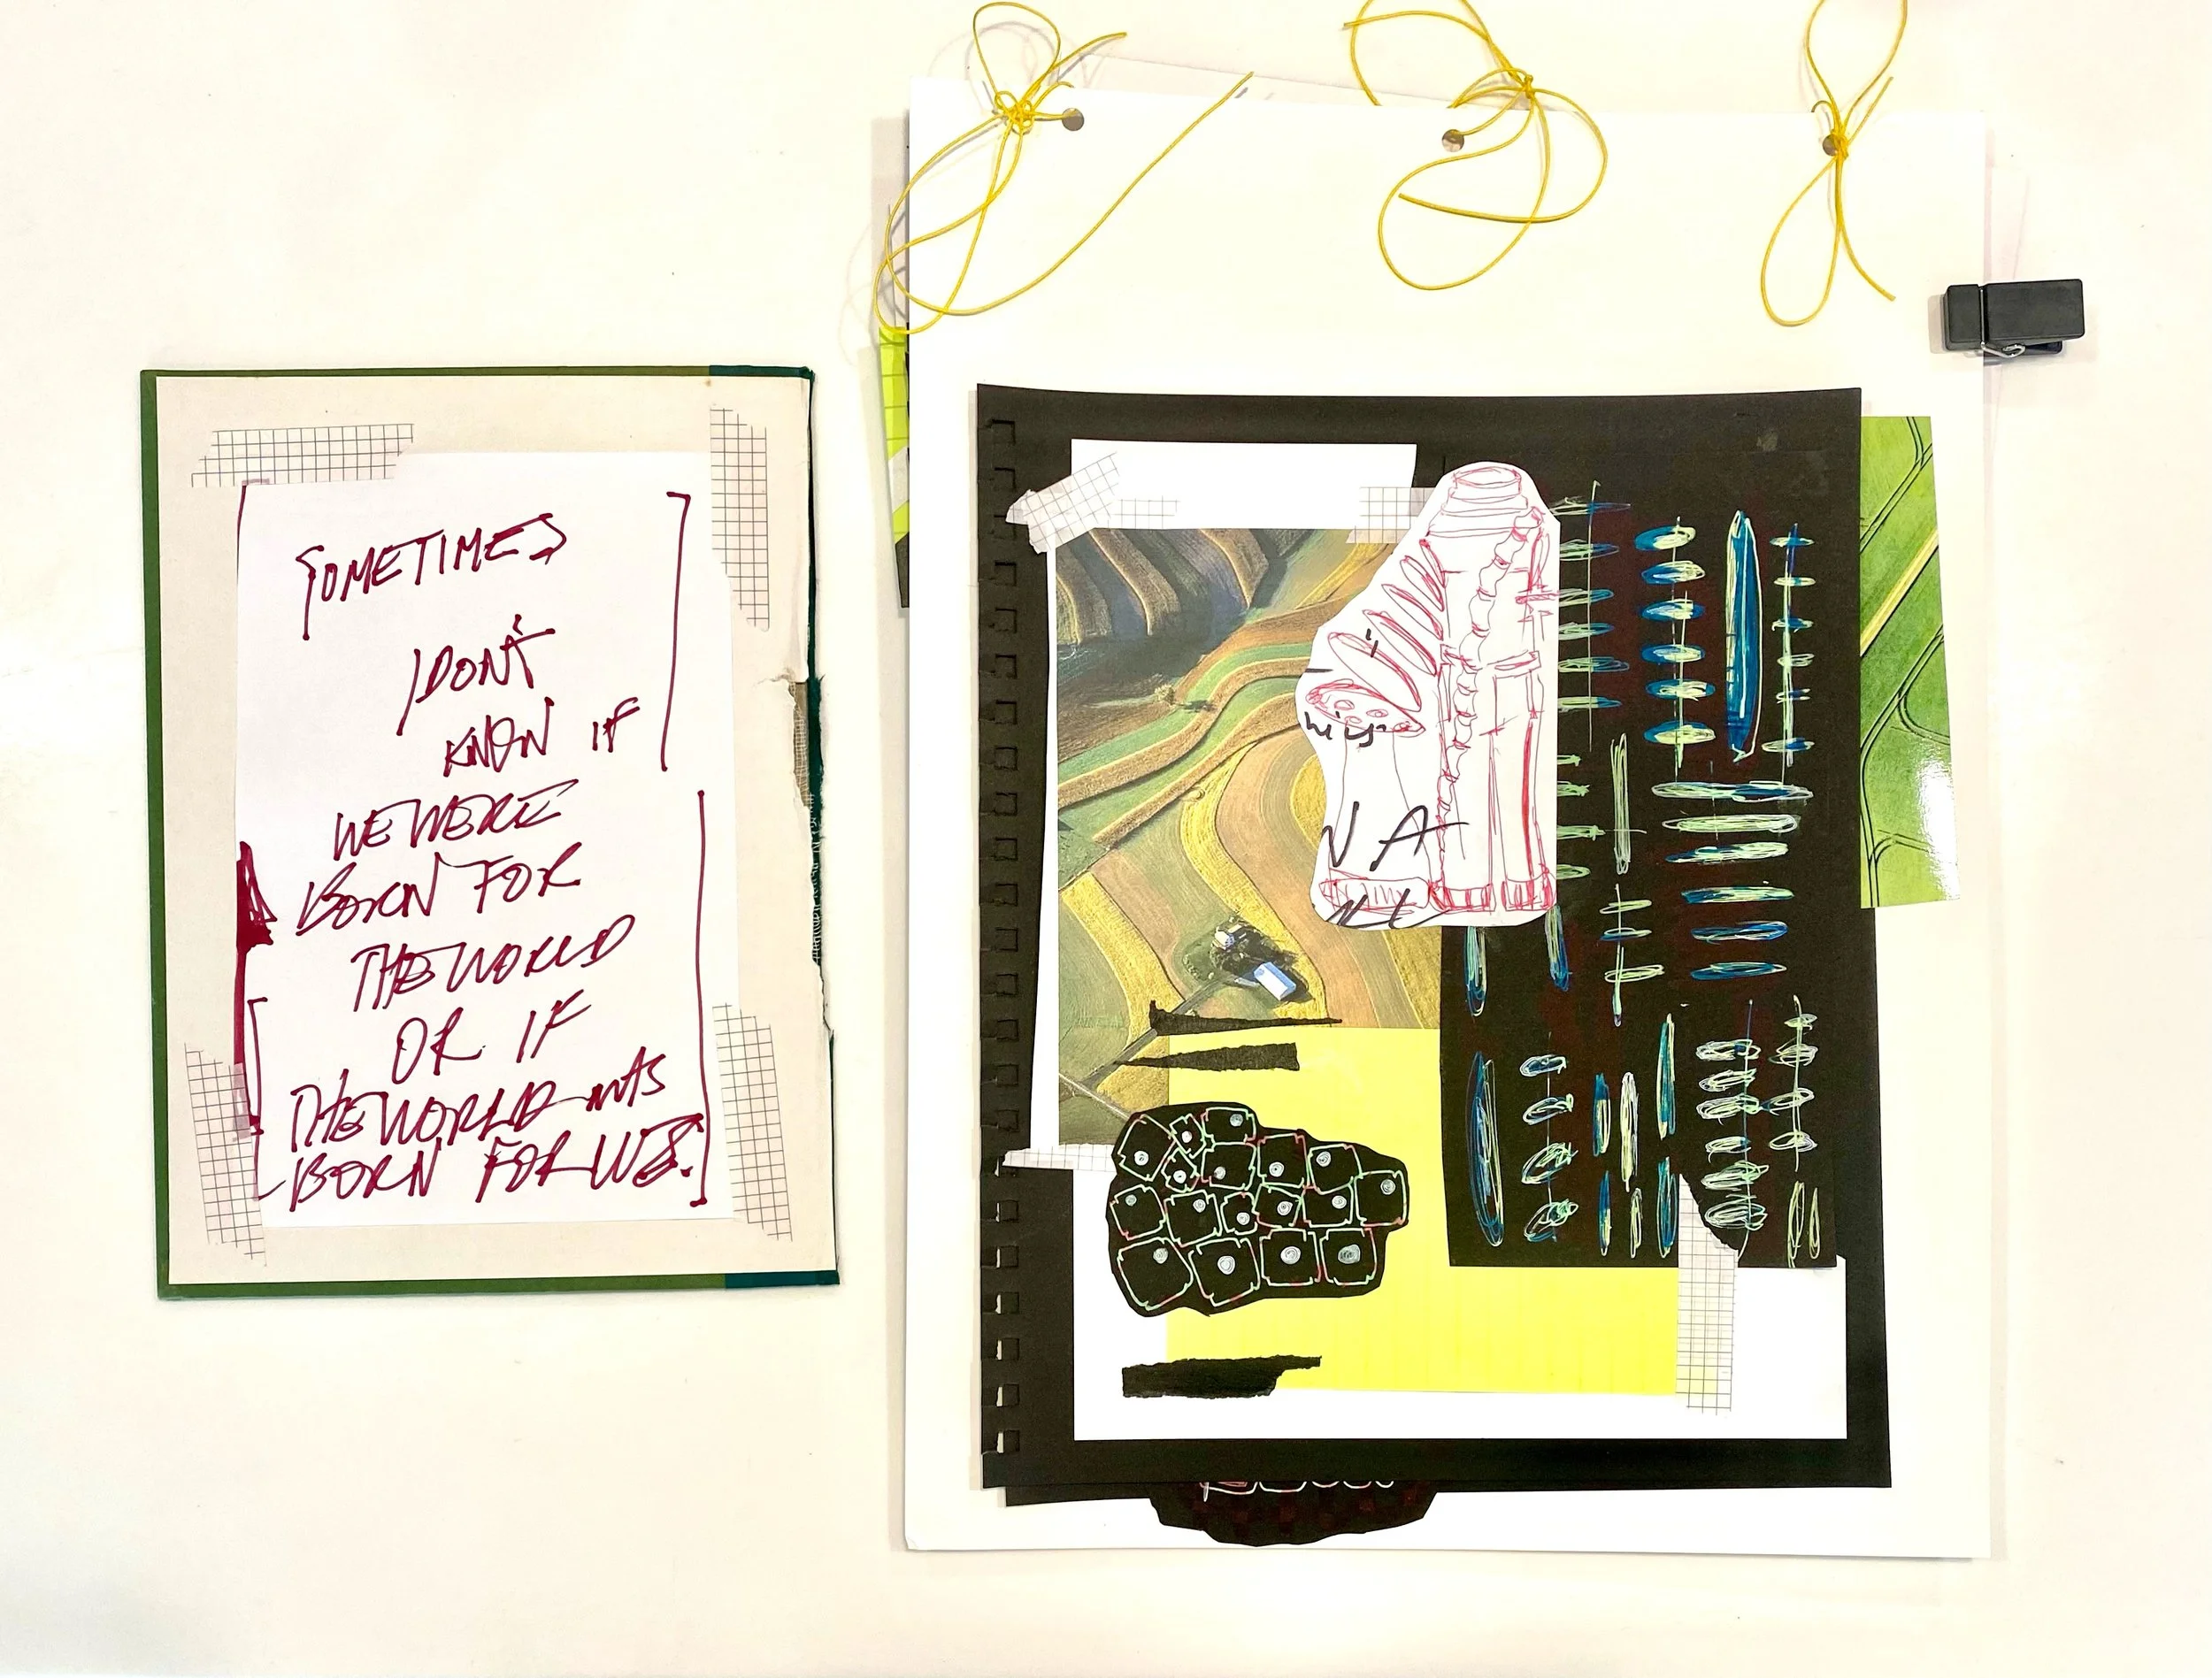 SOMETIMES
I DON'T
KNOW IF
WE WERE
BORN FOR
THE WORLD
OR IF
THE WORLD WAS
BORN FOR US.
NA